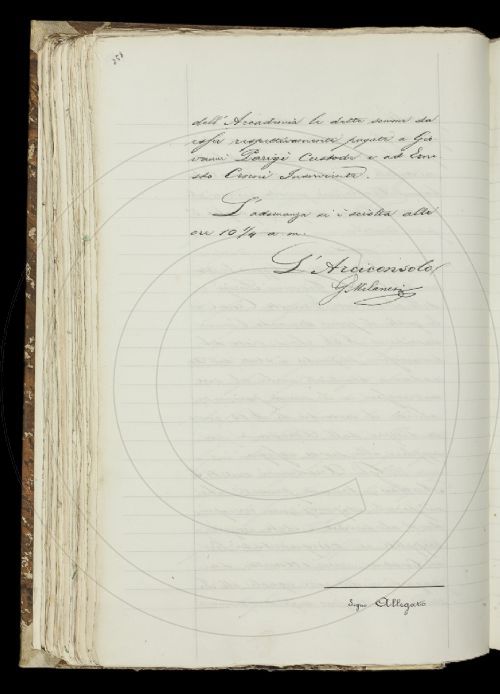 dell' Accademia le dette somme da
esser rispettivamente pagate a Gio
vanni Parigi Custode e ad Erne
sto Cecconi Inserviente.
L'adunanza si è sciolta alle
ore 10 1/4 a. m.
L'Arciconsolo
G Milanesi
Segue Allegato